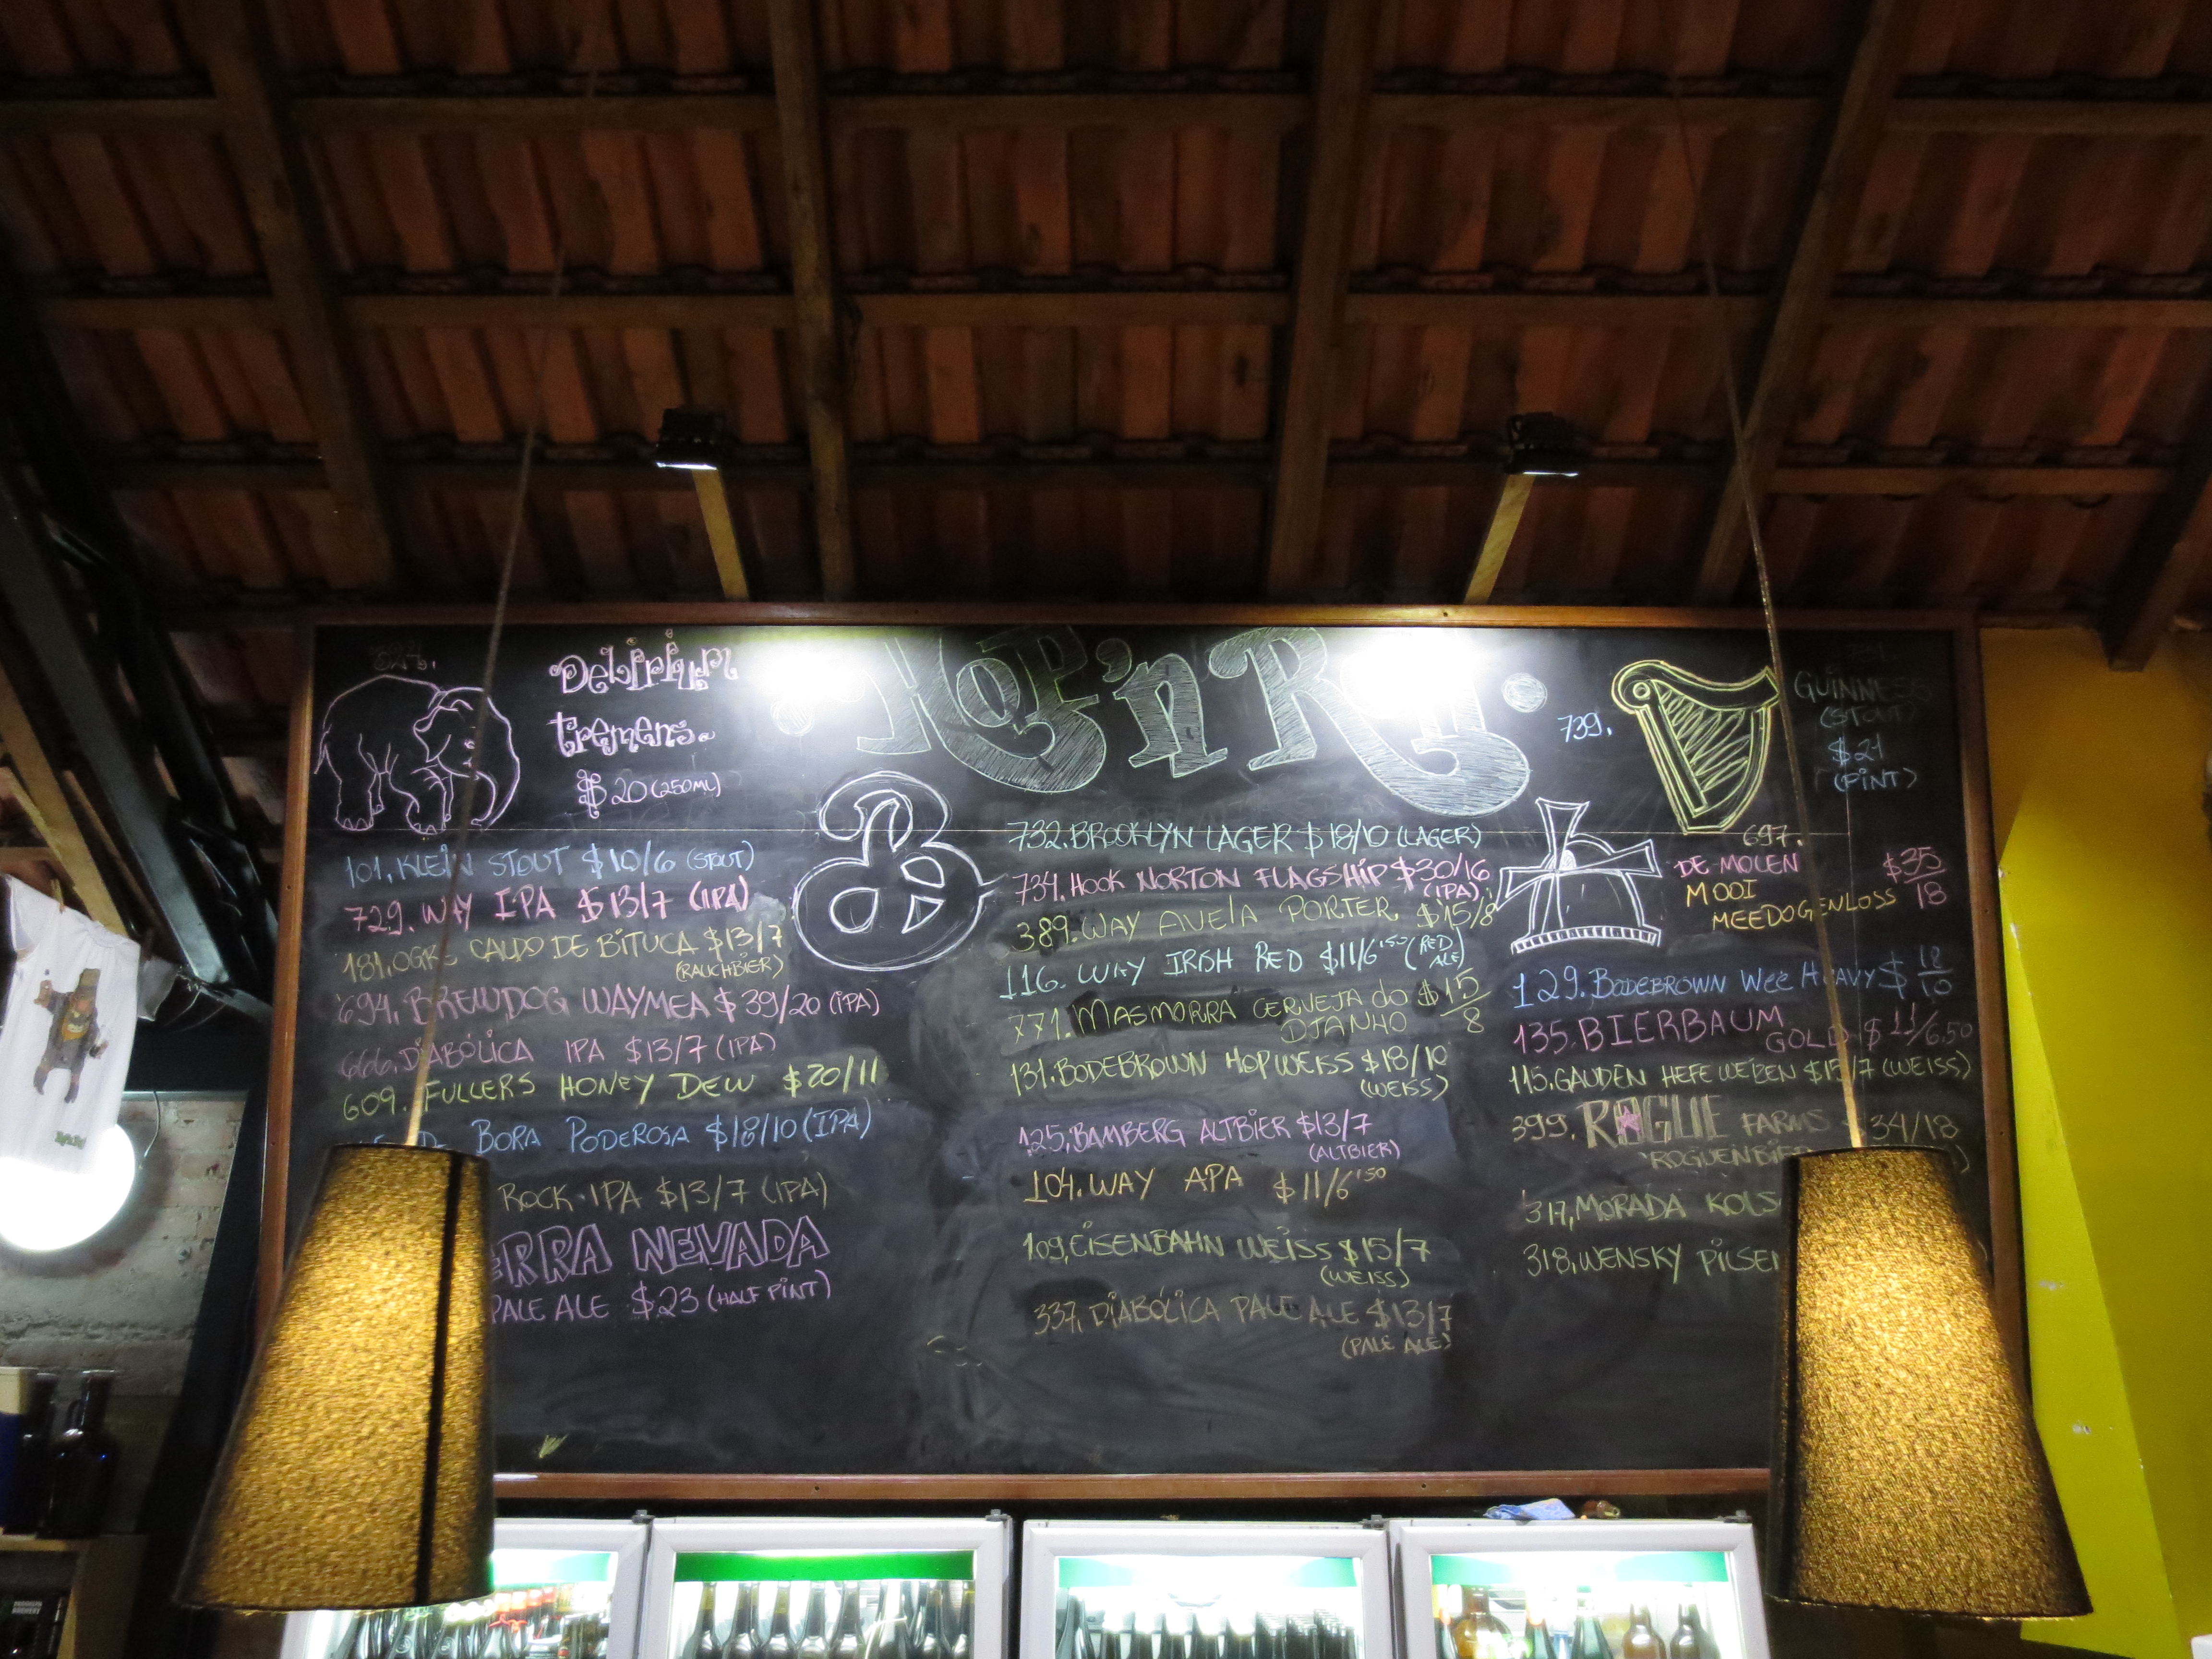 Delirium
tremens.
$20 (250ML)
101. KLEIN STOUT $10/6 (STOUT)
729. WAY IPA $13/7 (IPA)
181. OGRE CALDO DE BITUCA $13/7
(RAUCHBIER)
694. BREWDOG WAYMEA $39/20 (IPA)
666. DIABÓLICA IPA $13/7 (IPA)
609. FULLERS HONEY DEW $20/11
BORA PODEROSA $18/10 (IPA)
ROCK IPA $13/7 (IPA)
ERRA NEVADA
PALE ALE $23 (HALF PINT)
HOP'n R
732. BROOKLYN LAGER $18/10 (LAGER)
734. HOOK NORTON FLAGSHIP $30/16
(IPA)
389. WAY AVELA PORTER $15/8
116. WAY IRISH RED $11/6,50 (RED ALE)
771. MASMORRA CERVEJA do $15/8
DJANHO
131. BODEBROWN HOPWEISS $18/10
(WEISS)
125. BAMBERG ALTBIER $13/7
(ALTBIER)
104. WAY APA $11/6,50
109. EISENBAHN WEISS $15/7
(WEISS)
337. DIABÓLICA PALE ALE $13/7
(PALE ALE)
739.
GUINNESS
(STOUT)
$21
(PINT)
697.
DE MOLEN $35/18
MOOI
MEEDOGENLOSS
129. BODEBROWN Wee HEAVY $18/10
135. BIERBAUM
GOLD $11/6,50
115. GAUDEN HEFEWEIZEN $15/7 (WEISS)
399. ROGUE FARMS $34/18
ROGUENBIER
317. MORADA KOLS
318. WENSKY PILSEN